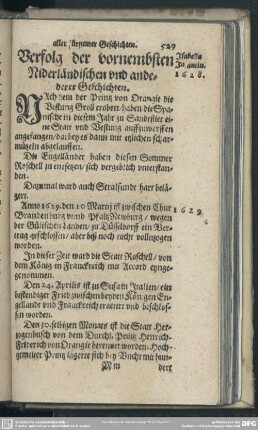 aller fürnamer Geschichten. 527
Verfolg der vornembsten
Niderländischen vnd ande-
derer Geschichten.
Isabella
1628.
NAchdem der Prinz von Orangie die
Vestung Groll erobert, haben die Spa-
nische in diesem Jahr zu Sandvliet ei-
ne Statt vnd Vestung auffzuwerffen
angefangen, darbey es dann mit etzlichen schar-
mützeln abgelauffen.
Die Engelländer haben diesen Sommer
Roschell zu entsetzen, sich vergeblich vnterstan-
den.
Dazumal ward auch Stralsundt hart belä-
gert.
Anno 1629. den 10 Martij ist zwischen Chur
Brandenburg vnnd Pfaltz Newburg / wegen
der Gülischen Landen, zu Düsseldorff ein Ver-
trag geschlossen / aber biß noch nicht vollnzogen
worden.
1629
In dieser Zeit ward die Statt Roschell / von
dem König in Franckreich mit Accord eynge-
genommen.
Den 24. Aprilis ist zu Susa in Italien / ein
bestendiger Fried zwischen beyden Königen En-
gellandt vnd Franckreich ernewert vnd beschlos-
sen worden.
Den 30. selbigen Monats ist die Statt Her-
zogenbusch von dem Durchl. Printz Henrich-
Friederich von Orangie berennet worden. Hoch-
gemelter Printz lägerte sich bey Vucht mit hun-
Mm dert